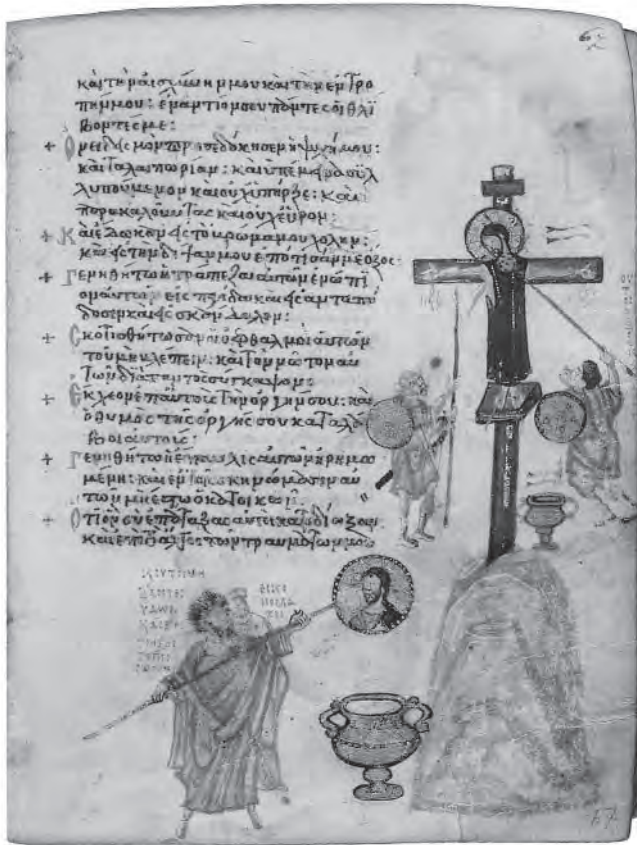 καὶ τὴν αἰσχύνην μου καὶ τὴν ἐντρο
πήν μου: ἐναντίον σου πάντες οἱ θλί
βοντές με:
+ Ὀνειδισμὸν προσεδόκησεν ἡ ψυχή μου:
καὶ ταλαιπωρίαν: καὶ ὑπέμεινα συλ
λυπούμενον καὶ οὐχ ὑπῆρξε: καὶ
παρακαλοῦντας καὶ οὐχ εὗρον:
+ Καὶ ἔδωκαν εἰς τὸ βρῶμά μου χολήν:
καὶ εἰς τὴν δίψαν μου ἐπότισάν με ὄξος:
+ Γενηθήτω ἡ τράπεζα αὐτῶν ἐνώπι
ον αὐτῶν εἰς παγίδα καὶ εἰς ἀνταπό
δοσιν καὶ εἰς σκάνδαλον:
+ Σκοτισθήτωσαν οἱ ὀφθαλμοὶ αὐτῶν
τοῦ μὴ βλέπειν: καὶ τὸν νῶτον αὐ
τῶν διὰ παντὸς σύγκαμψον:
+ Ἔκχεον ἐπ' αὐτοὺς τὴν ὀργήν σου: καὶ
ὁ θυμὸς τῆς ὀργῆς σου καταλά
βοι αὐτούς:
+ Γενηθήτω ἡ ἔπαυλις αὐτῶν ἠρημω
μένη: καὶ ἐν τοῖς σκηνώμασιν αὐ
τῶν μὴ ἔστω ὁ κατοικῶν:
+ Ὅτι ὃν σὺ ἐπάταξας αὐτοὶ κατεδίωξαν
καὶ ἐπὶ τὸ ἄλγος τῶν τραυμάτων μου